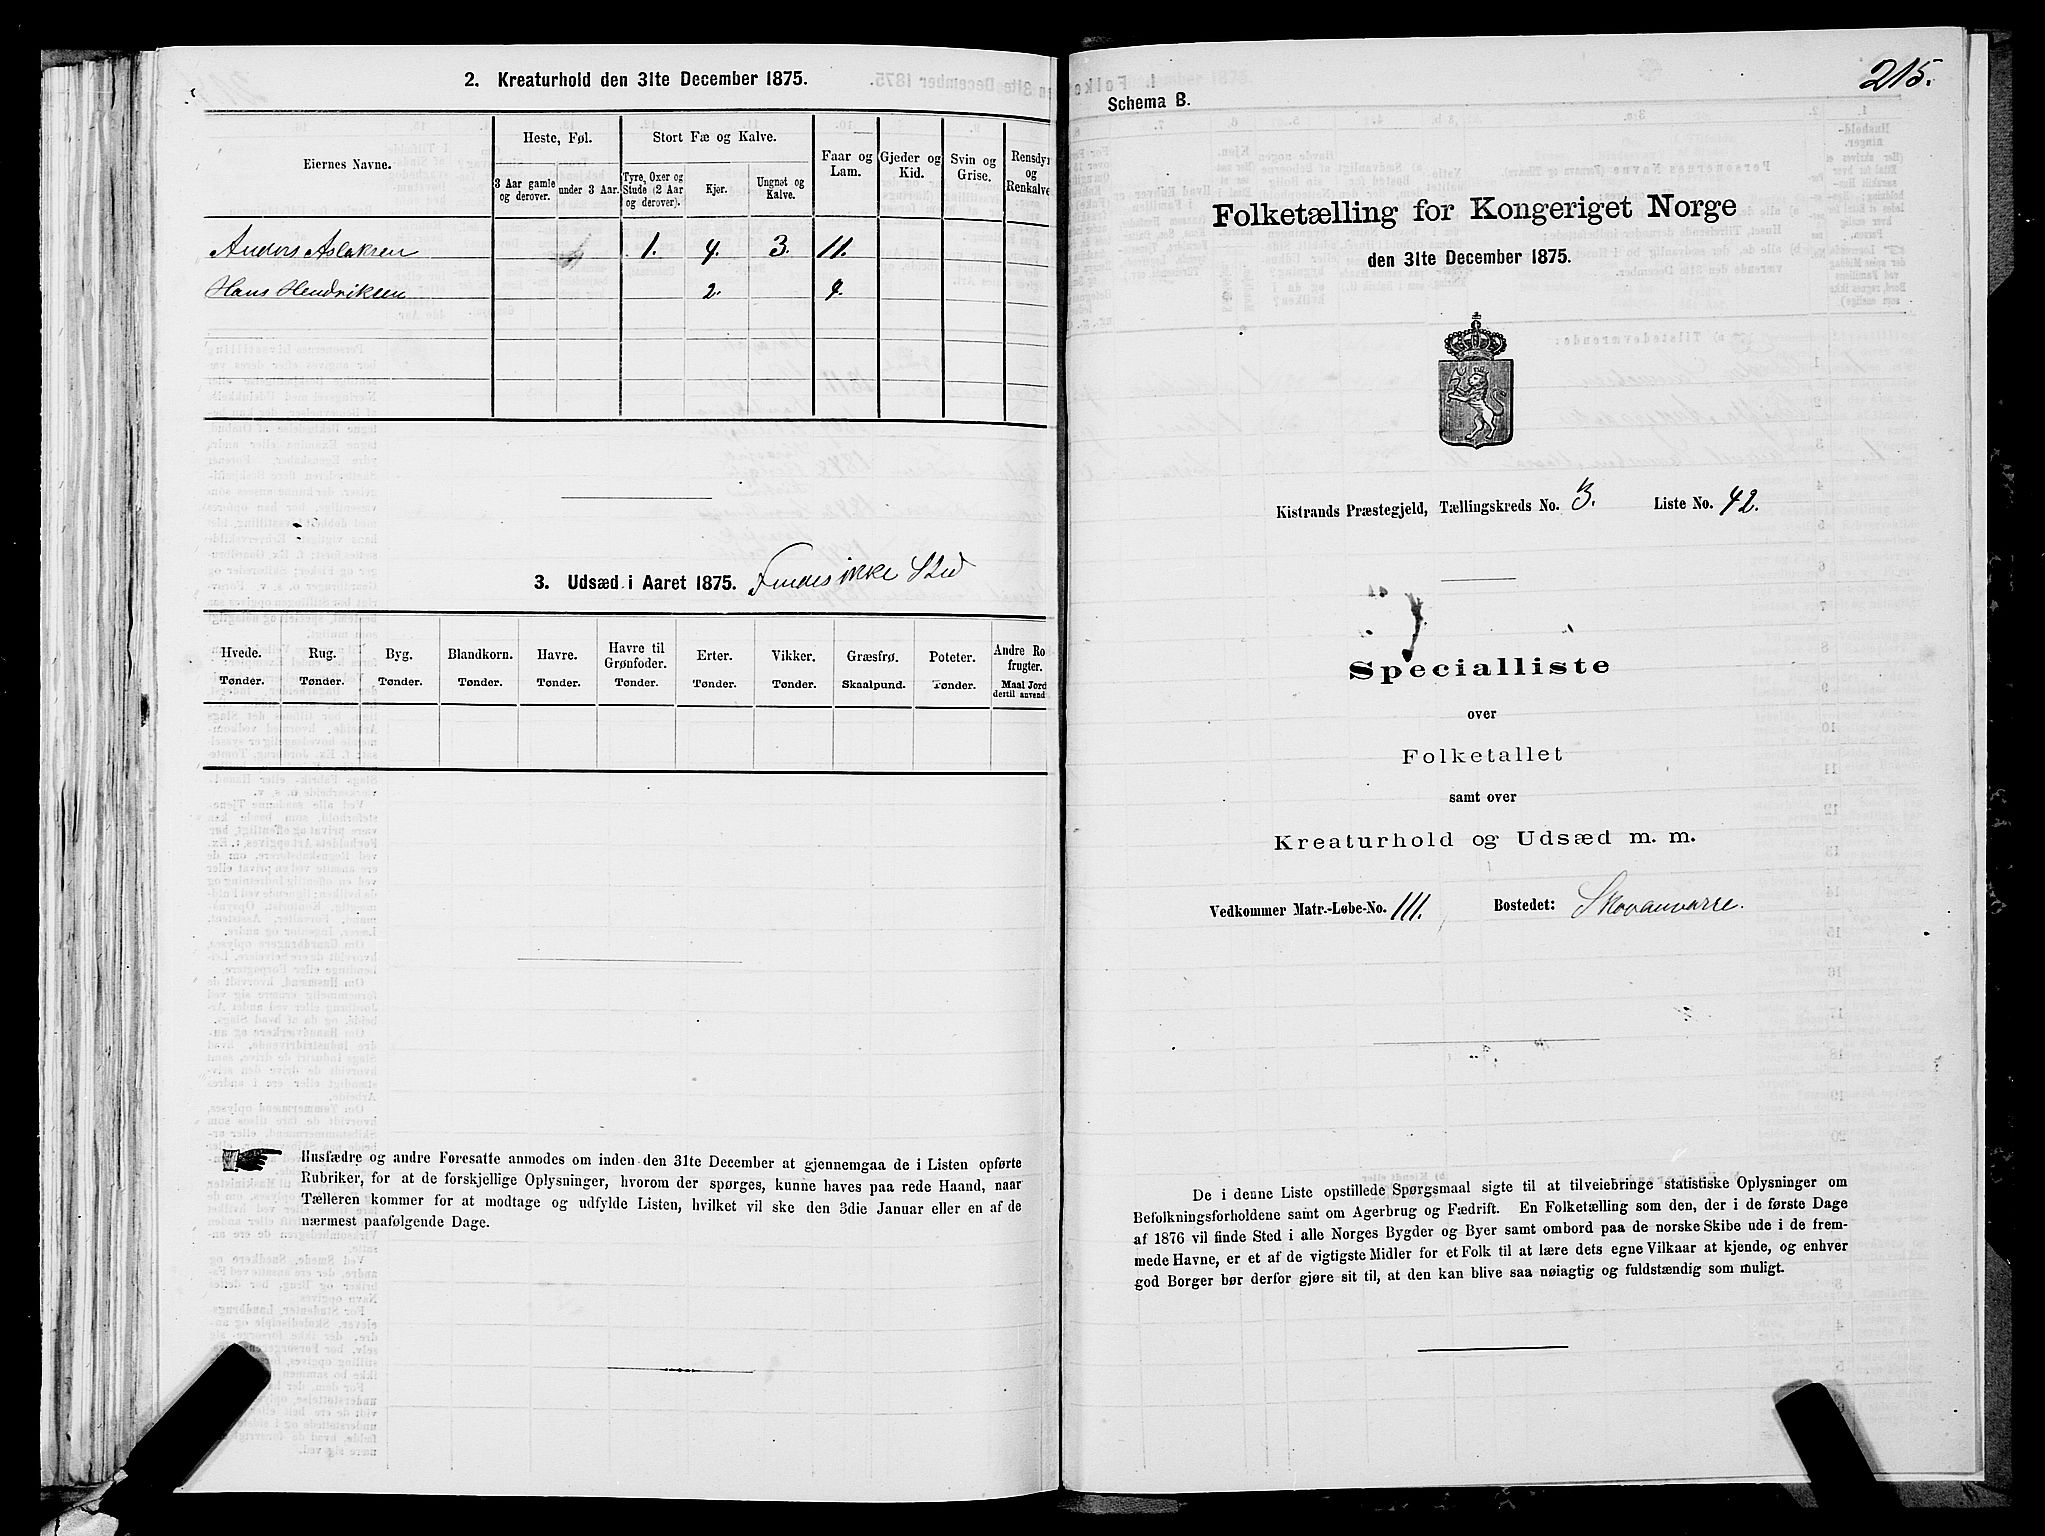 2. Kreaturhold den 31te December 1875.
Eiernes Navne.
Heste, Føl.
Stort Fæ og Kalve.
Faar og Lam.
Gjeder og Kid.
Svin og Grise.
Rensdyr og Renkalve
3 Aar gamle og derover.
under 3 Aar.
Tyre, Oxer og Stude (2 Aar og derover).
Kjør.
Ungnøt og Kalve.
Anders Aslaksen 1. 4. 3. 11.
Hans Hendriksen 2. 4.
3. Udsæd i Aaret 1875. Findes ikke Sted
Hvede. Rug. Byg. Blandkorn. Havre. Havre til Grønfoder. Erter. Vikker. Græsfrø. Poteter. Andre Ro frugter.
Tønder. Tønder. Tønder. Tønder. Tønder. Tønder. Tønder. Tønder. Skaalpund. Tønder. Maal Jord dertil anvend
Husfædre og andre Foresatte anmodes om inden den 31te December at gjennemgaa de i Listen opførte
Rubriker, for at de forskjellige Oplysninger, hvorom der spørges, kunne haves paa rede Haand, naar
Tælleren kommer for at modtage og udfylde Listen, hvilket vil ske den 3die Januar eller en af de
nærmest paafølgende Dage.
215.
Schema B.
Folketælling for Kongeriget Norge
den 31te December 1875.
Kistrands Præstegjeld, Tællingskreds No. 3. Liste No. 42.
Specialliste
over
Folketallet
samt over
Kreaturhold og Udsæd m. m.
Vedkommer Matr.-Løbe-No. 111. Bostedet: Skovanvarre.
De i denne Liste opstillede Spørgsmaal sigte til at tilveiebringe statistiske Oplysninger om
Befolkningsforholdene samt om Agerbrug og Fædrift. En Folketælling som den, der i de første Dage
af 1876 vil finde Sted i alle Norges Bygder og Byer samt ombord paa de norske Skibe ude i de frem-
mede Havne, er et af de vigtigste Midler for et Folk til at lære dets egne Vilkaar at kjende, og enhver
god Borger bør derfor gjøre sit til, at den kan blive saa nøiagtig og fuldstændig som muligt.